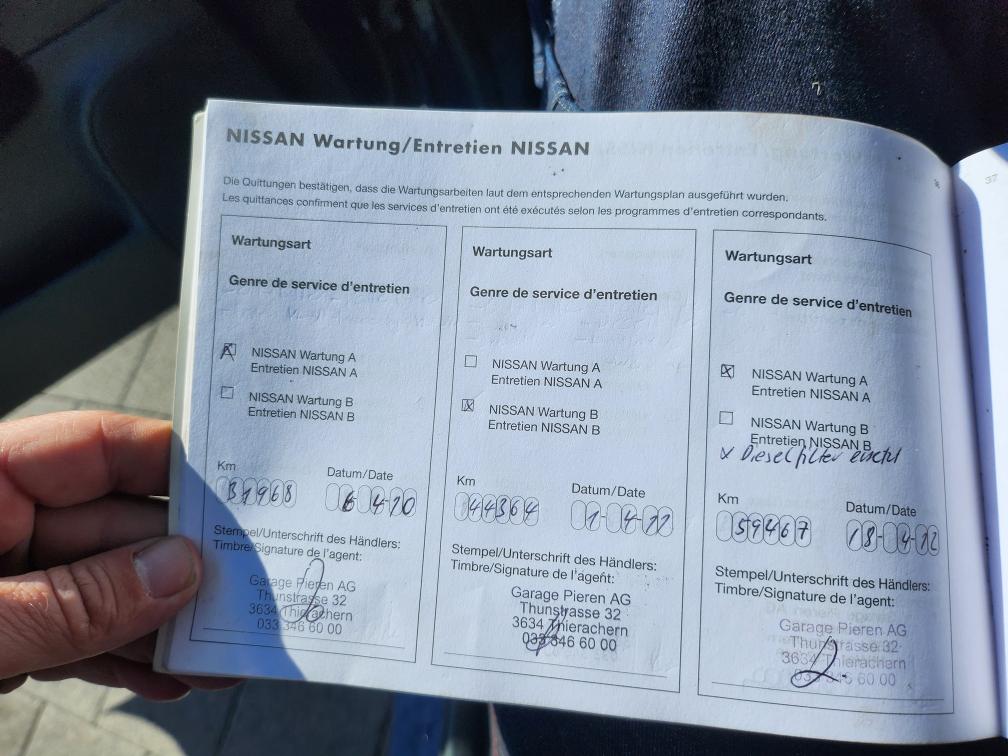 NISSAN Wartung/Entretien NISSAN
Die Quittungen bestätigen, dass die Wartungsarbeiten laut dem entsprechenden Wartungsplan ausgeführt wurden.
Les quittances confirment que les services d'entretien ont été exécutés selon les programmes d'entretien correspondants.
Wartungsart
Genre de service d'entretien
NISSAN Wartung A
Entretien NISSAN A
NISSAN Wartung B
Entretien NISSAN B
Km
Datum/Date
31968
6 4-10
Stempel/Unterschrift des Händlers:
Timbre/Signature de l'agent:
Garage Pieren AG
Thunstrasse 32
3634 Thierachern
033 346 60 00
Wartungsart
Genre de service d'entretien
NISSAN Wartung A
Entretien NISSAN A
X NISSAN Wartung B
Entretien NISSAN B
Km
Datum/Date
44364
1-4-11
Stempel/Unterschrift des Händlers:
Timbre/Signature de l'agent:
Garage Pieren AG
Thunstrasse 32
3634 Thierachern
033 346 60 00
Wartungsart
Genre de service d'entretien
X NISSAN Wartung A
Entretien NISSAN A
NISSAN Wartung B
Entretien NISSAN B
x Dieselfilter
Km
Datum/Date
59467
18-4-12
Stempel/Unterschrift des Händlers:
Timbre/Signature de l'agent:
Garage Pieren AG
Thunstrasse 32
3634 Thierachern
033 346 60 00
37